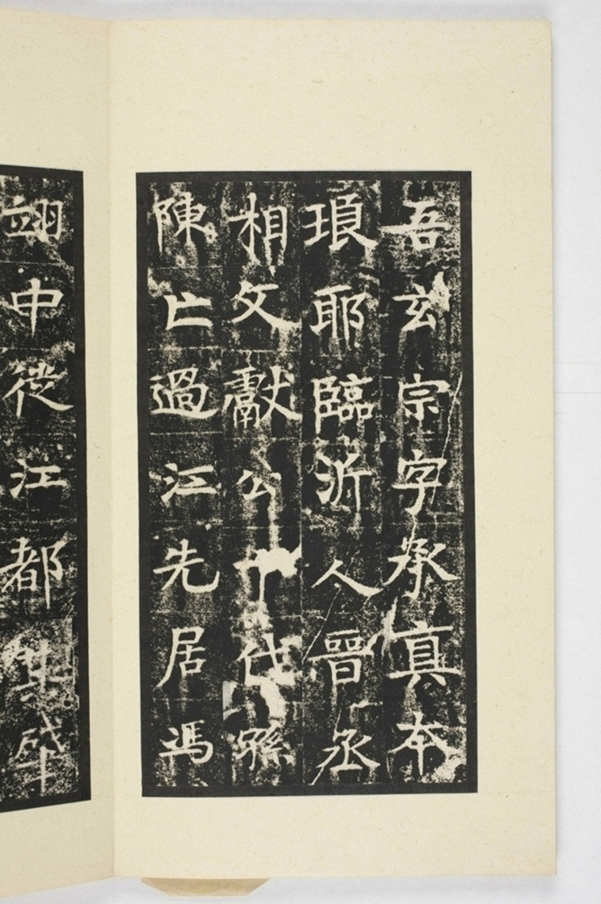 吾玄宗字承真本
琅耶臨沂人晉丞
相文獻公十代孫
陳亡過江先居馮
翊中徙江都